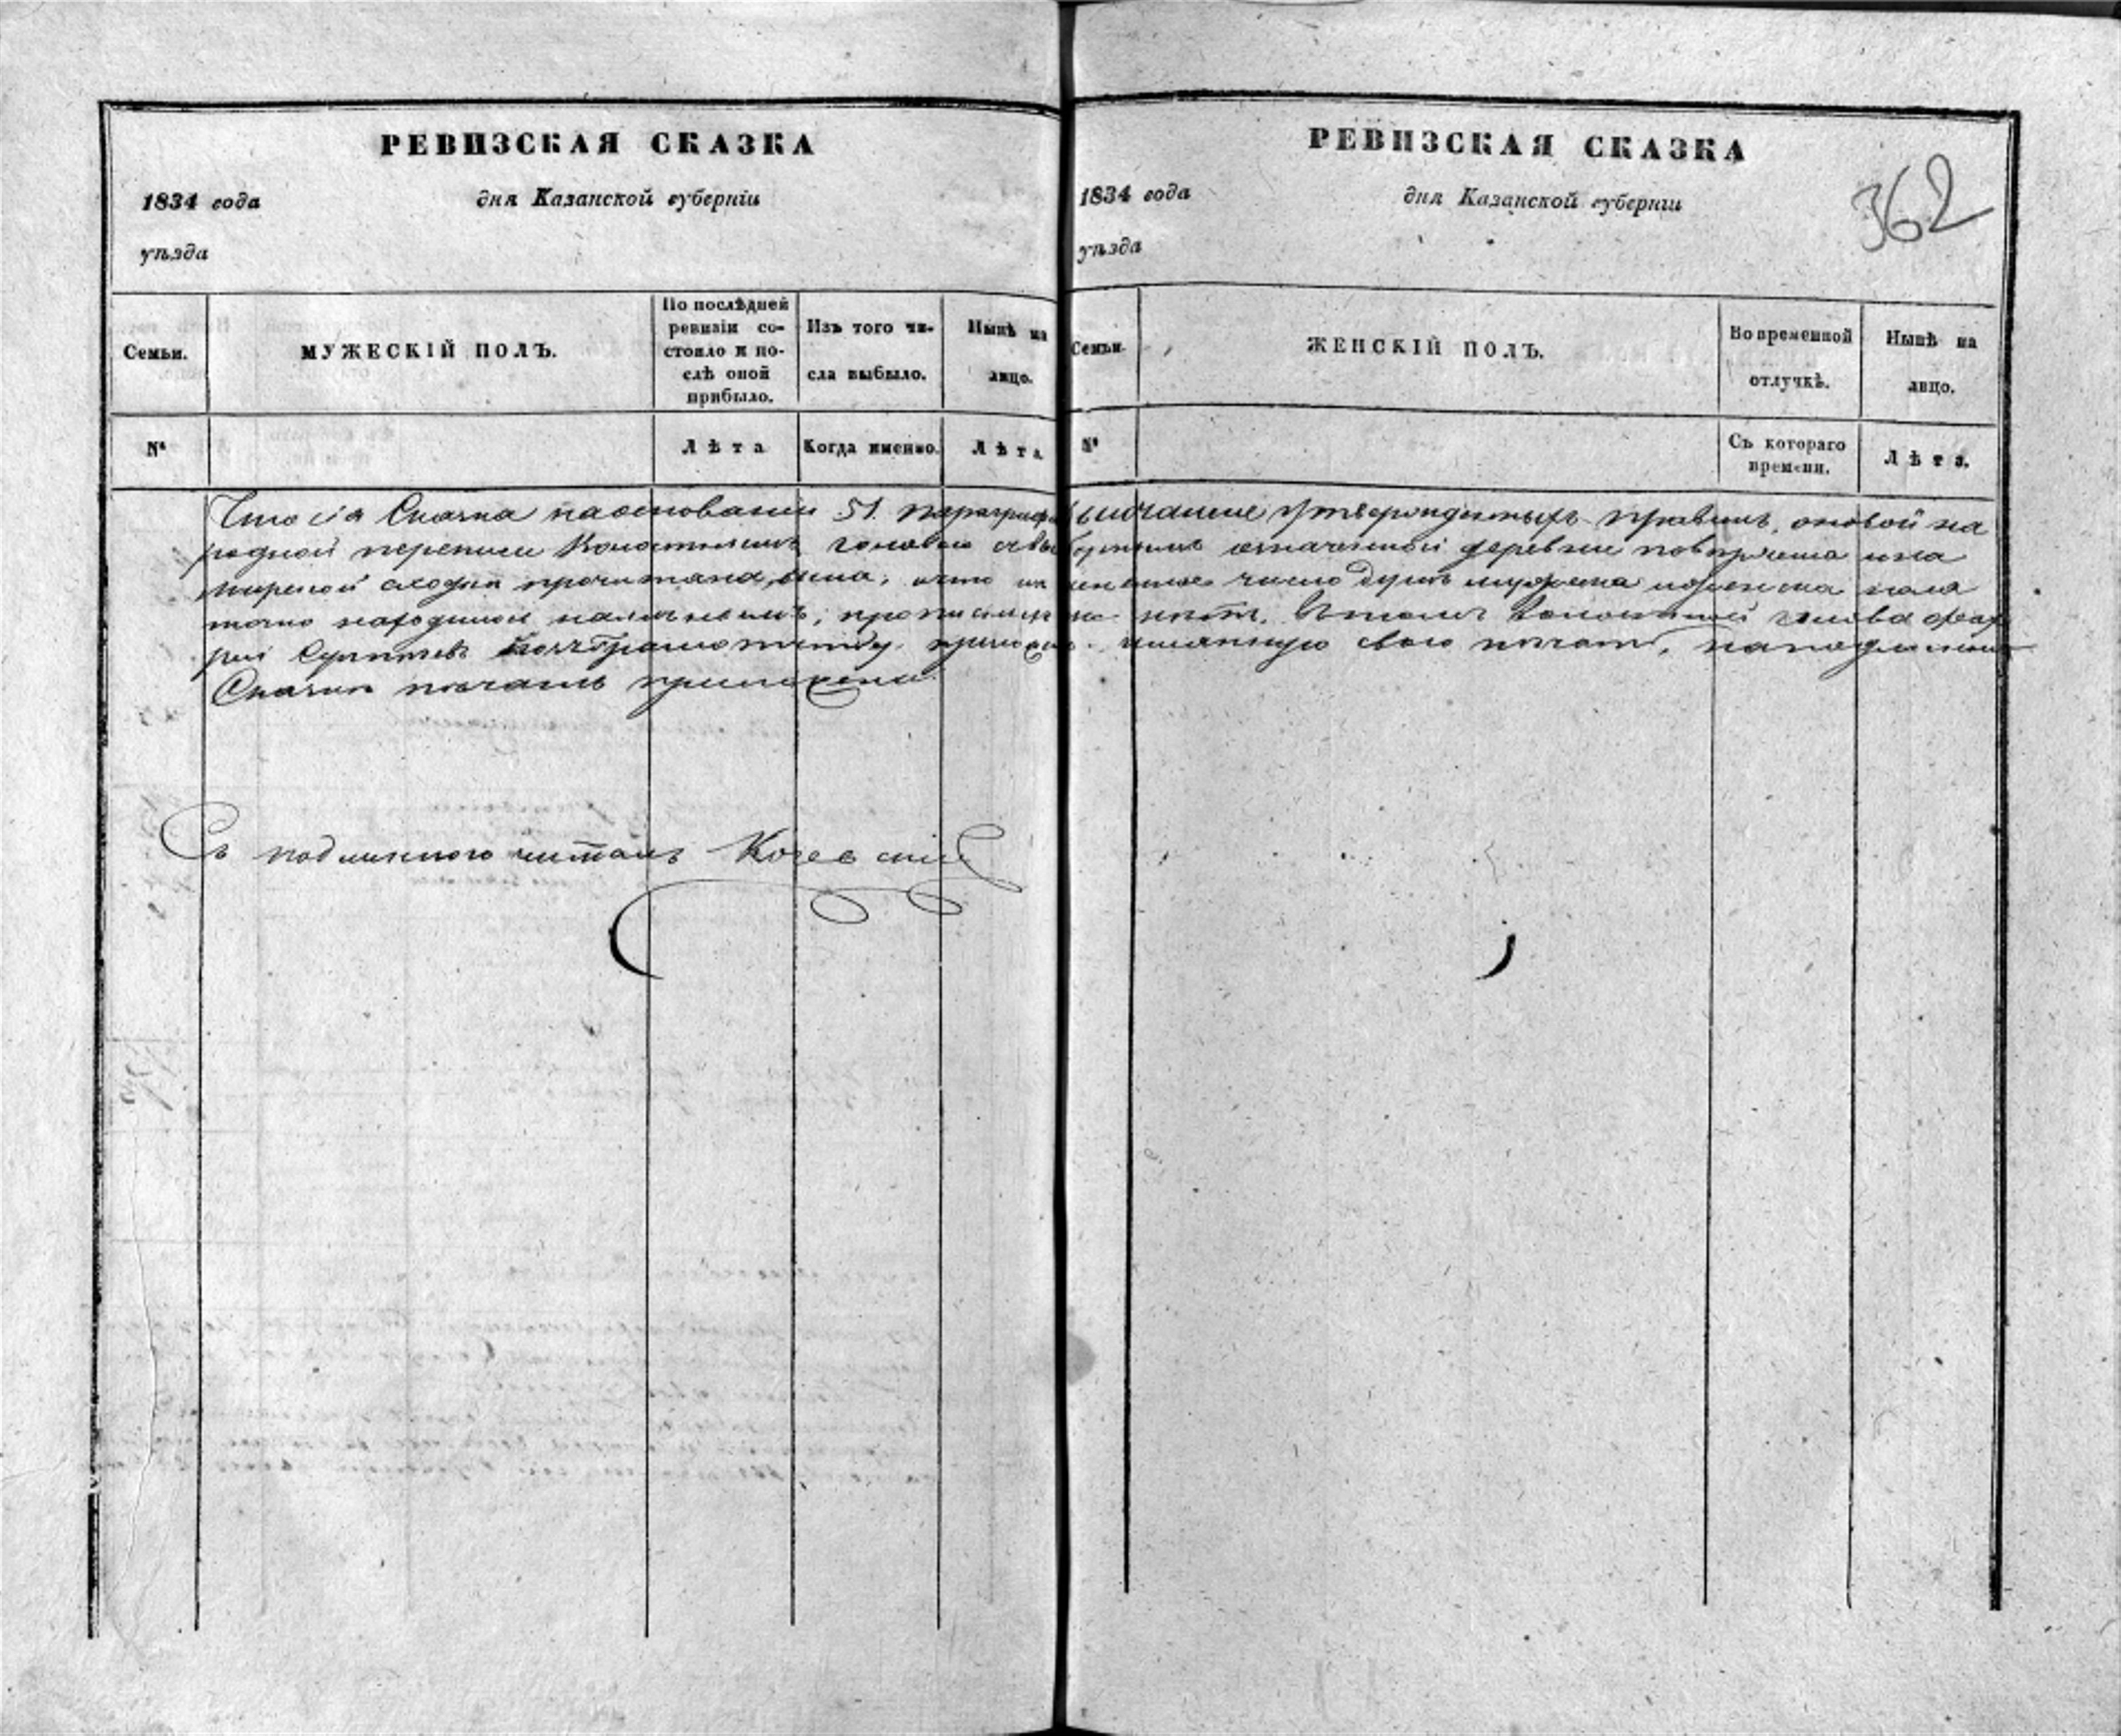 РЕВИЗСКАЯ СКАЗКА
1834 года дня Казанской губернiи
уѣзда
Семьи.
МУЖЕСКІЙ ПОЛЪ.
По послѣдней
ревизіи со-
стояло и по-
слѣ оной
прибыло.
Изъ того чи-
сла выбыло.
Нынѣ на
лицо.
№
Лѣта
Когда именно.
Лѣта
РЕВИЗСКАЯ СКАЗКА
1834 года дня Казанской губернiи
уѣзда
362
Семьи.
ЖЕНСКІЙ ПОЛЪ.
Во временной
отлучкѣ.
Нынѣ на
лицо.
№
Съ котораго
времени.
Лѣта.
Что сія Сказка наосновании 51 параграфа высочайше утвержденныхъ правилъ, оновой на
родной переписи Волостнымъ головою означенной деревни повѣрена ина
мирской сходки прочитана, число душъ мужеска иженска пола
точно находится, нѣтъ. Волостной голова
свою печать,
Сказки печать приложена
Съ подлиннаго читалъ